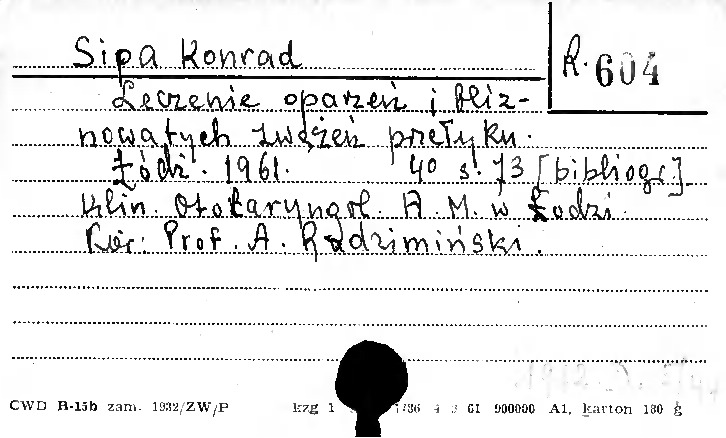 Sipa Konrad
R. 604
Leczenie oparzeń i bliz-
nowatych zwężeń przełyku.
Łódź. 1961. 40 s. 73 [bibliogr.]
Klin. Otolaryngol. A. M. w Łodzi.
Kier: Prof. A. Radzimiński.
CWD R-15b zam. 1932/ZW/P kzg 1 61 900000 A1, karton 180 g